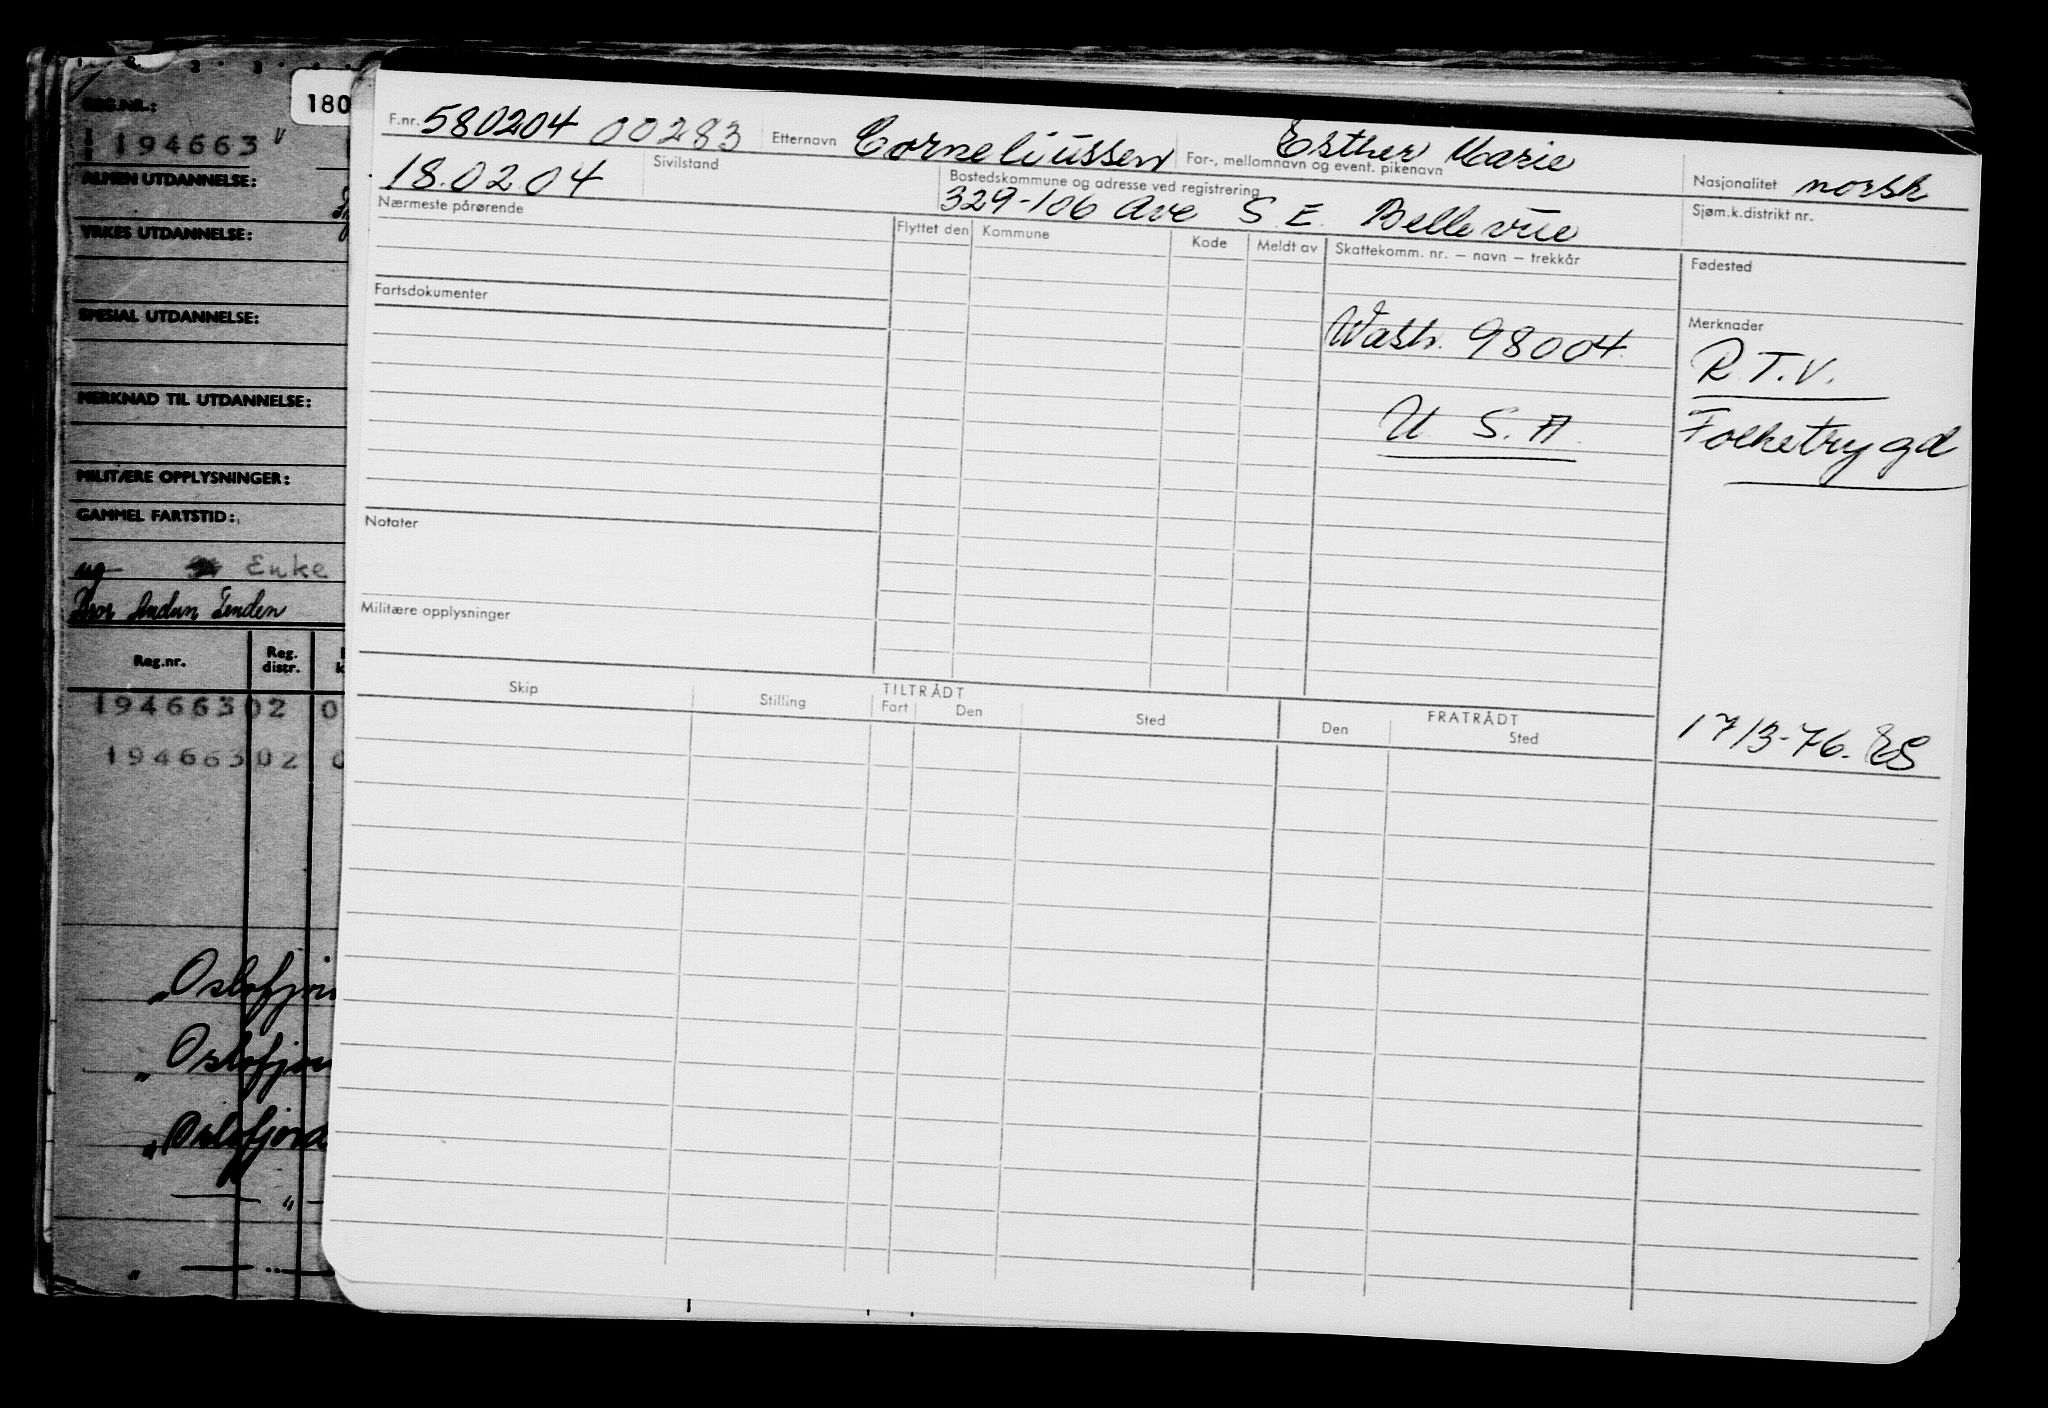 REG.NR.:
194663 v
ALMEN UTDANNELSE:
YRKES UTDANNELSE:
SPESIAL UTDANNELSE:
MERKNAD TIL UTDANNELSE:
MILITÆRE OPPLYSNINGER:
GAMMEL FARTSTID:
ug Enke
Reg.nr. Reg. distr.
194663 02 0
194663 02 0
"Oslofjor
"Oslofjor
"Oslofjord
— " —
" — " —
180
F.nr. 580204 00283 Etternavn Corneliussen For-, mellomnavn og event. pikenavn Esther Marie
18.02.04 Sivilstand Bostedskommune og adresse ved registrering Nasjonalitet norsk
Nærmeste pårørende 329-106 Ave S.E. Bellevue Sjøm.k.distrikt nr.
Flyttet den Kommune Kode Meldt av Skattekomm. nr. — navn — trekkår Fødested
Fartsdokumenter
Wash. 98004. Merknader
R.T.V.
U.S.A. Folketrygd
Notater
Militære opplysninger
Skip Stilling TILTRÅDT FRATRÅDT
Fart Den Sted Den Sted
17/3-76. ES